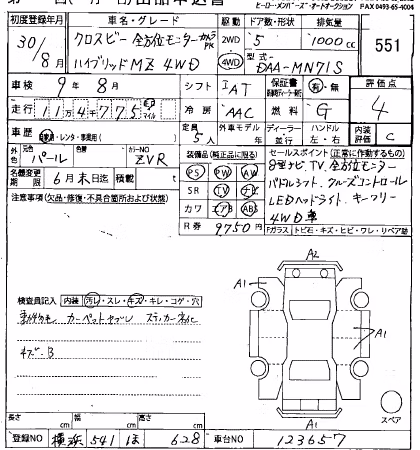 ヒーロー・メンバーズ・オートオークション FAX 0493-65-4004
初度登録年月 車名・グレード 駆動 ドア数・形状 排気量
30/8 クロスビー 全方位モニターカメラPK 2WD 5 1000cc 551
ハイブリッドMZ 4WD 4WD 型式 DAA-MN71S
車検 9年 8月 シフト IAT 保証書 有・無 評価点
走行 11万4千775 km マイル 冷房 AAC 燃料 G 4
車歴 自家用・レンタ・事業用( ) 定員 5人 外車モデル 年 ディーラー 並行 ハンドル 左・右 内装評価 C
外装 元色 パール 色替 カラーNO ZVR
装備品(純正品に限る) セールスポイント(正常に作動するもの)
名義変更期限 6月末日迄 積載 t
PS PW AW 8型ナビ、TV、全方位モニター
注意事項(欠品・修復・不具合箇所および改造等)
SR TV ナビ パドルシフト、クルーズコントロール
カワ エアB ABS LEDヘッドライト、キーフリー
R券 9750円 4WD車
Fガラス トビ石・キズ・ヒビ・ワレ・リペア跡
A2
A1
検査員記入 内装 汚レ・スレ・キズ・キレ・コゲ・穴
カーペットヨゴレ
A1
キズ・B
A1
スペア
長さ cm 幅 cm 高さ cm
登録NO 横浜 541 ほ 628 車台NO 123657